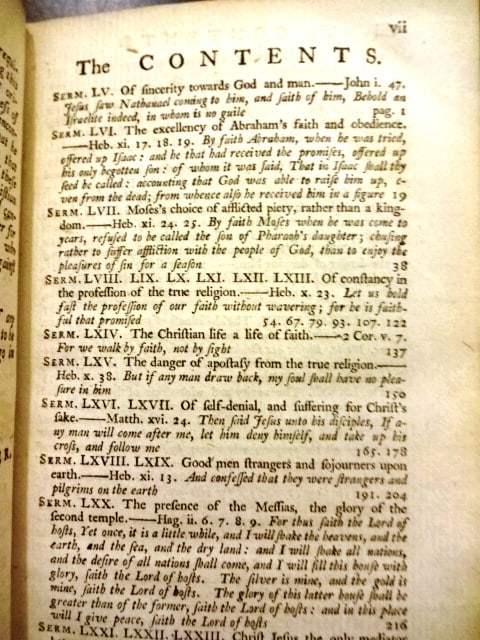 vii
The CONTENTS.
SERM. LV. Of sincerity towards God and man.——John i. 47.
Jesus saw Nathanael coming to him, and saith of him, Behold an
Israelite indeed, in whom is no guile pag. 1
SERM. LVI. The excellency of Abraham's faith and obedience.
——Heb. xi. 17. 18. 19. By faith Abraham, when he was tried,
offered up Isaac: and he that had received the promises, offered up
his only begotten son: of whom it was said, That in Isaac shall thy
seed be called: accounting that God was able to raise him up, e-
ven from the dead; from whence also he received him in a figure 19
SERM. LVII. Moses's choice of afflicted piety, rather than a king-
dom.——Heb. xi. 24. 25. By faith Moses when he was come to
years, refused to be called the son of Pharaoh's daughter; chusing
rather to suffer affliction with the people of God, than to enjoy the
pleasures of sin for a season 38
SERM. LVIII. LIX. LX. LXI. LXII. LXIII. Of constancy in
the profession of the true religion.——Heb. x. 23. Let us hold
fast the profession of our faith without wavering; for he is faith-
ful that promised 54. 67. 79. 93. 107. 122
SERM. LXIV. The Christian life a life of faith.——2 Cor. v. 7.
For we walk by faith, not by sight 137
SERM. LXV. The danger of apostasy from the true religion.——
Heb. x. 38. But if any man draw back, my soul shall have no plea-
sure in him 150
SERM. LXVI. LXVII. Of self-denial, and suffering for Christ's
sake.——Matth. xvi. 24. Then said Jesus unto his disciples, If a-
ny man will come after me, let him deny himself, and take up his
cross, and follow me 165. 178
SERM. LXVIII. LXIX. Good men strangers and sojourners upon
earth.——Heb. xi. 13. And confessed that they were strangers and
pilgrims on the earth 191. 204
SERM. LXX. The presence of the Messias, the glory of the
second temple.——Hag. ii. 6. 7. 8. 9. For thus saith the Lord of
hosts, Yet once, it is a little while, and I will shake the heavens, and the
earth, and the sea, and the dry land: and I will shake all nations,
and the desire of all nations shall come, and I will fill this house with
glory, saith the Lord of hosts. The silver is mine, and the gold is
mine, saith the Lord of hosts. The glory of this latter house shall be
greater than of the former, saith the Lord of hosts: and in this place
will I give peace, saith the Lord of hosts 216
SERM. LXXI. LXXII. LXXIII. Christ Jesus the only mediator